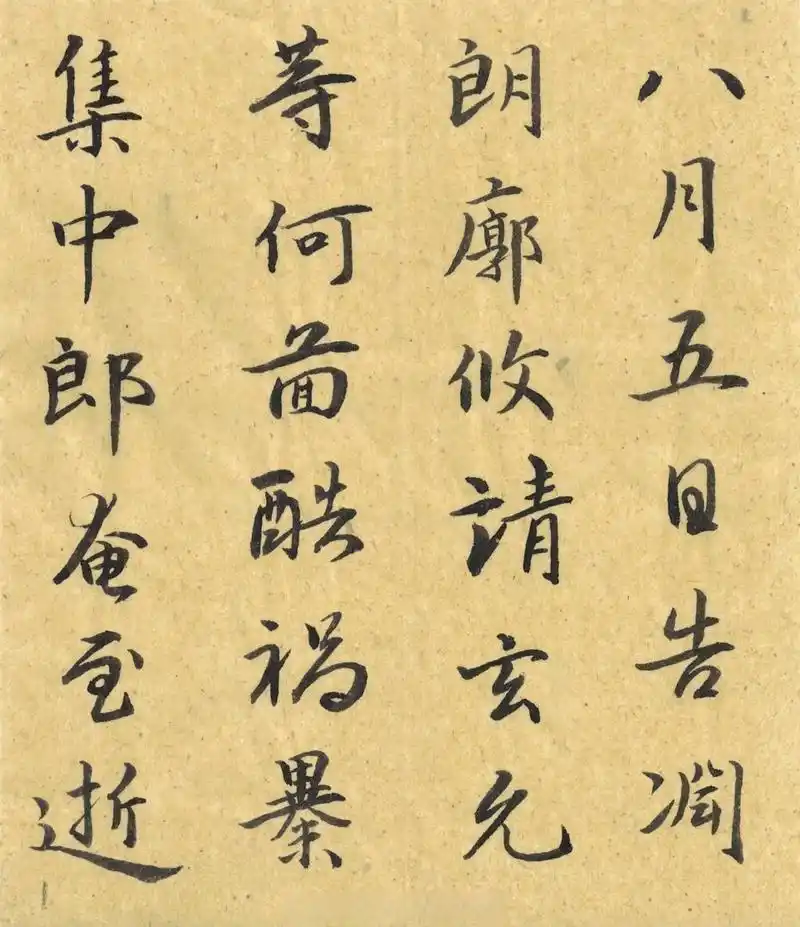 八月五日告淵
朗廓攸靖玄允
等何圖酷禍暴
集中郎奄至逝